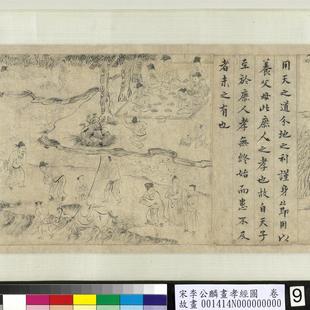 用天之道分地之利謹身節用以
養父母此庶人之孝也故自天子
至於庶人孝無終始而患不及
者未之有也
宋李公麟畫孝經圖 卷
故畫 001414N000000000
9